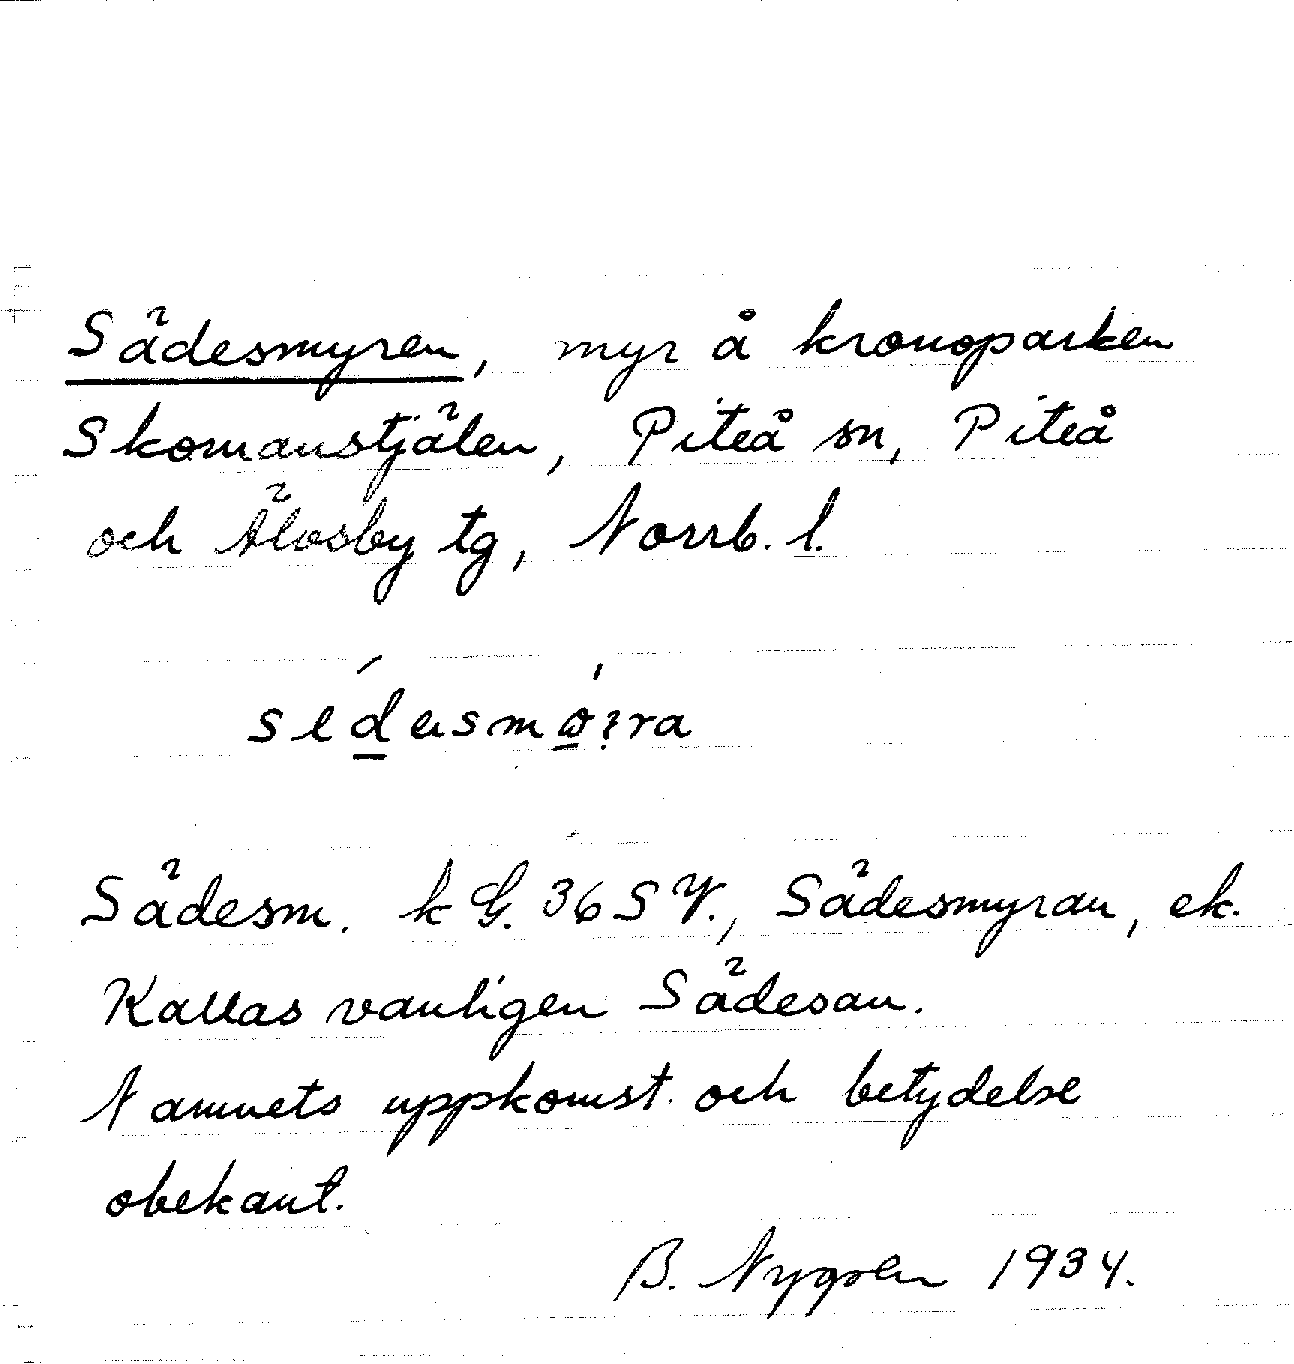 Sädesmyren, myr å kronoparken
Skomanstjälen, Piteå sn, Piteå
och Älvsby tg, Norrb. l.
Sädesm. k G. 36 S V., Sädesmyran, ek.
Kallas vanligen Sädesan.
Namnets uppkomst och betydelse
obekant.
B. Nygren 1934.